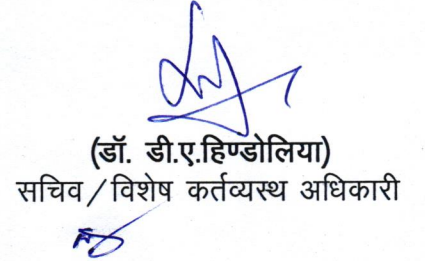 (डॉ. डी.ए.हिण्डोलिया)
सचिव/विशेष कर्तव्यस्थ अधिकारी